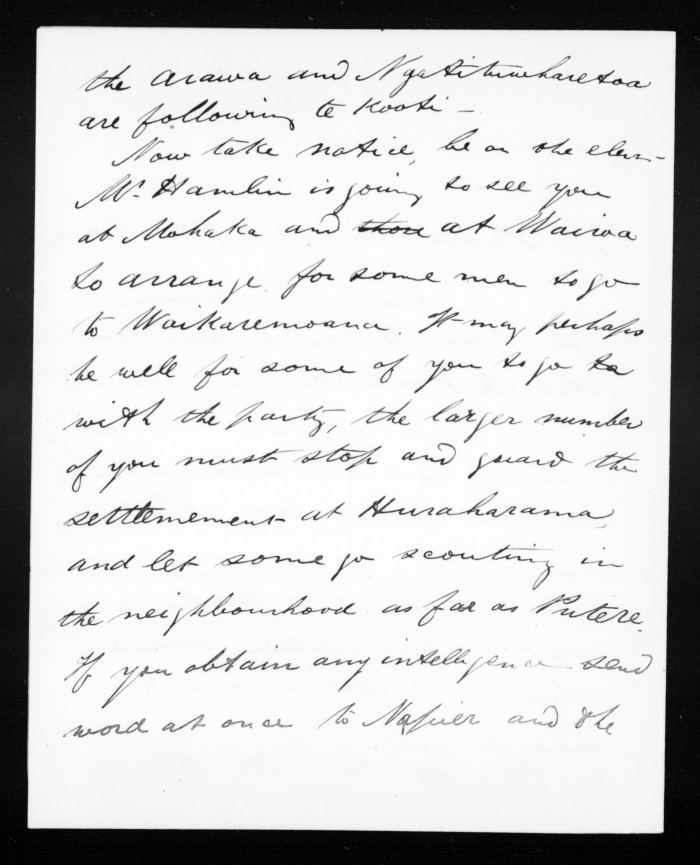 the Arawa and Ngatituwharetoa
are following te Kooti -
Now take notice, be on the alert -
Mr. Hamlin is going to see you
at Mohaka and at Wairoa
to arrange for some men to go
to Waikaremoana. It may perhaps
be well for some of you to go to
with the party, the larger number
of you must stop and guard the
settlemement at Huraharama,
and let some go scouting in
the neighbourhood as far as Putere.
If you obtain any intelligence send
word at once to Napier and the